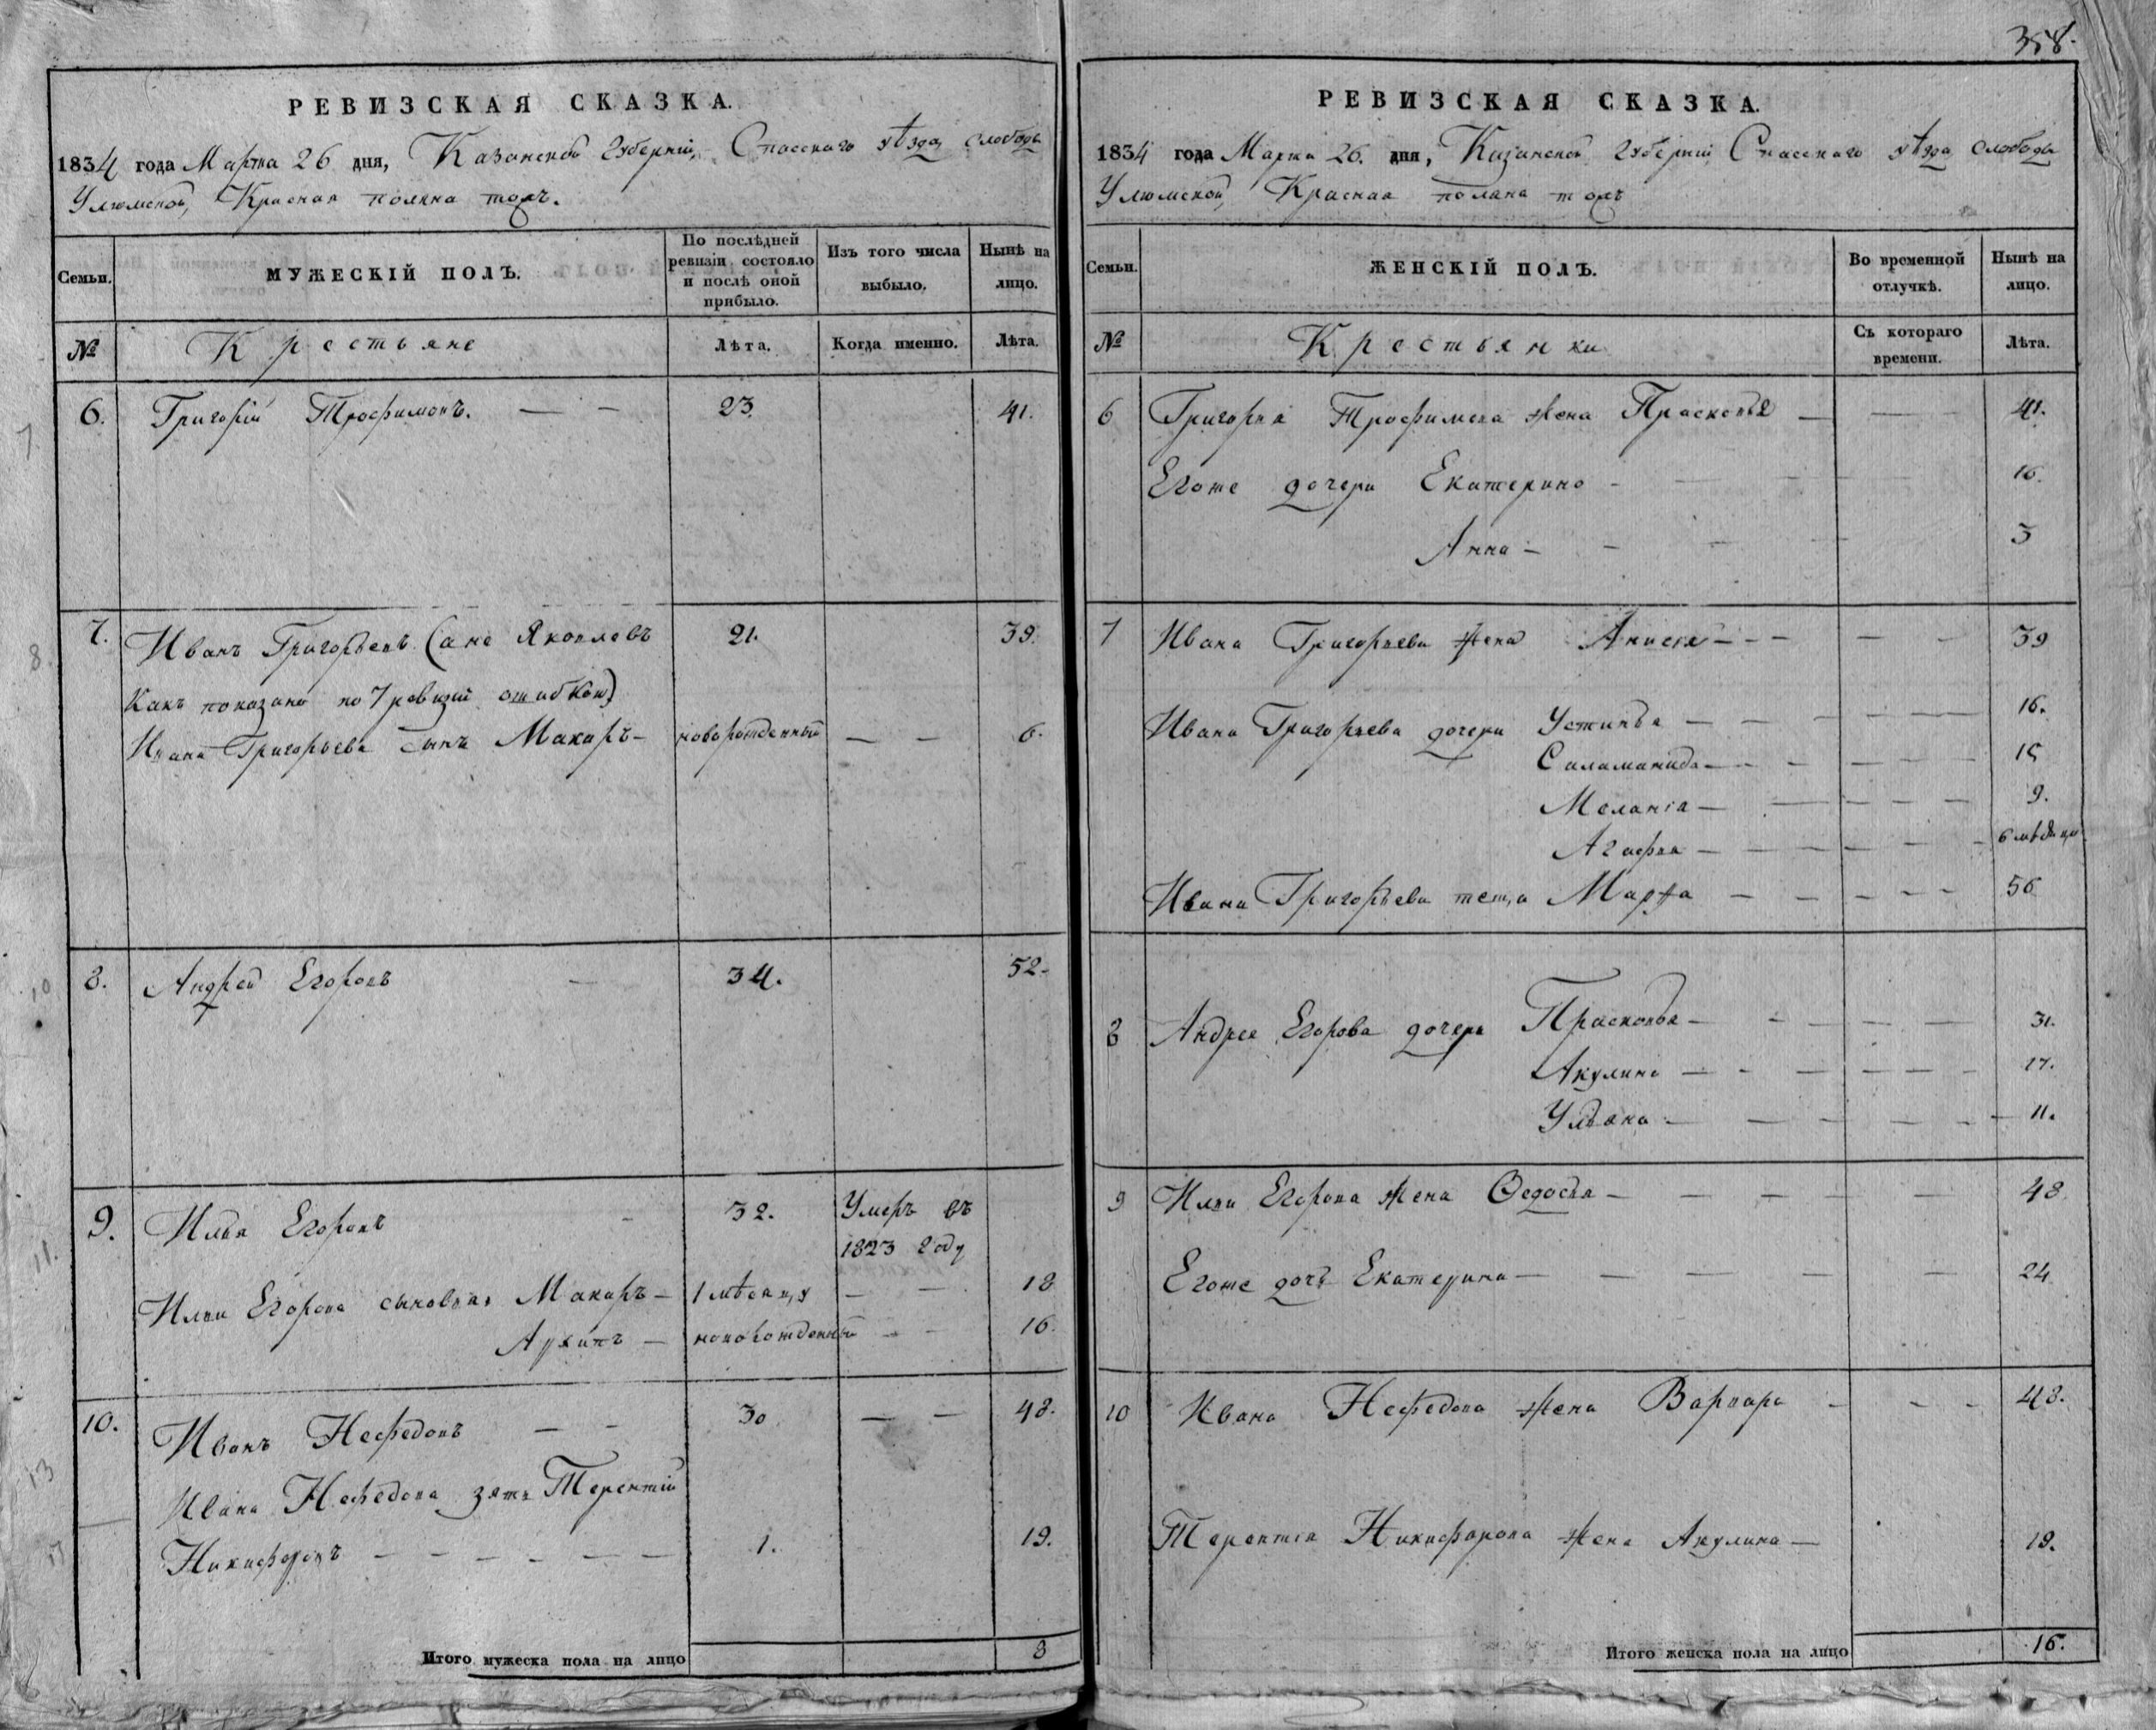 358.
РЕВИЗСКАЯ СКАЗКА.
1834 года Марта 26 дня, Казанской Губерніи, Спасскаго уѣзда слободы
Улюмской, Красная поляна тожъ.
Семьи.
МУЖЕСКІЙ ПОЛЪ.
По послѣдней ревизіи состояло и послѣ оной прибыло.
Изъ того числа выбыло.
Нынѣ на лицо.
№
Крестьяне
Лѣта.
Когда именно.
Лѣта.
6. Григорій Трофимовъ. — — 23. 41.
7. Иванъ Григорьевъ (а не Яковлевъ 21. 39.
Какъ показано по 7 ревизіи ошибкою)
Ивана Григорьева сынъ Макаръ — новорожденный — — 6.
8. Андрей Егоровъ — 34. 52.
9. Илья Егоровъ — 32. Умеръ въ
1823 году
Ильи Егорова сыновья Макаръ — 1 мѣсяцъ — — 18
Архипъ — новорожденный — — 16.
10. Иванъ Нефедовъ — — 30 — — 48.
Ивана Нефедова зять Терентій
Никифоровъ — — — — — — 1. 19.
Итого мужеска пола на лицо 8
РЕВИЗСКАЯ СКАЗКА.
1834 года Марта 26. дня, Казанской Губерніи Спасскаго уѣзда слободы
Улюмской, Красная поляна тожъ
Семьи.
ЖЕНСКІЙ ПОЛЪ.
Во временной отлучкѣ.
Нынѣ на лицо.
№
Крестьянки
Съ котораго времени.
Лѣта.
6 Григорья Трофимова жена Прасковья — — — 41.
Егоже дочери Екатерина — — — — 16.
Анна — — — — 3
7 Ивана Григорьева жена Анисія — — — — — 39
Ивана Григорьева дочери Устинья — — — — — — 16.
Саламанида — — — — — — 15
Меланія — — — — — 9.
Агафья — — — — — — — 6 мѣсяцъ
Ивана Григорьева теща Марѳа — — — — — — 56
8 Андрея Егорова дочери Прасковья — — — — — 31.
Акулина — — — — — — 17.
Ульяна — — — — — — 11.
9 Ильи Егорова жена Ѳедосья — — — — — — 48.
Егоже дочь Екатерина — — — — — — 24.
10 Ивана Нефедова жена Варвара — — — — 48.
Терентія Никифорова жена Акулина — 19.
Итого женска пола на лицо 16.